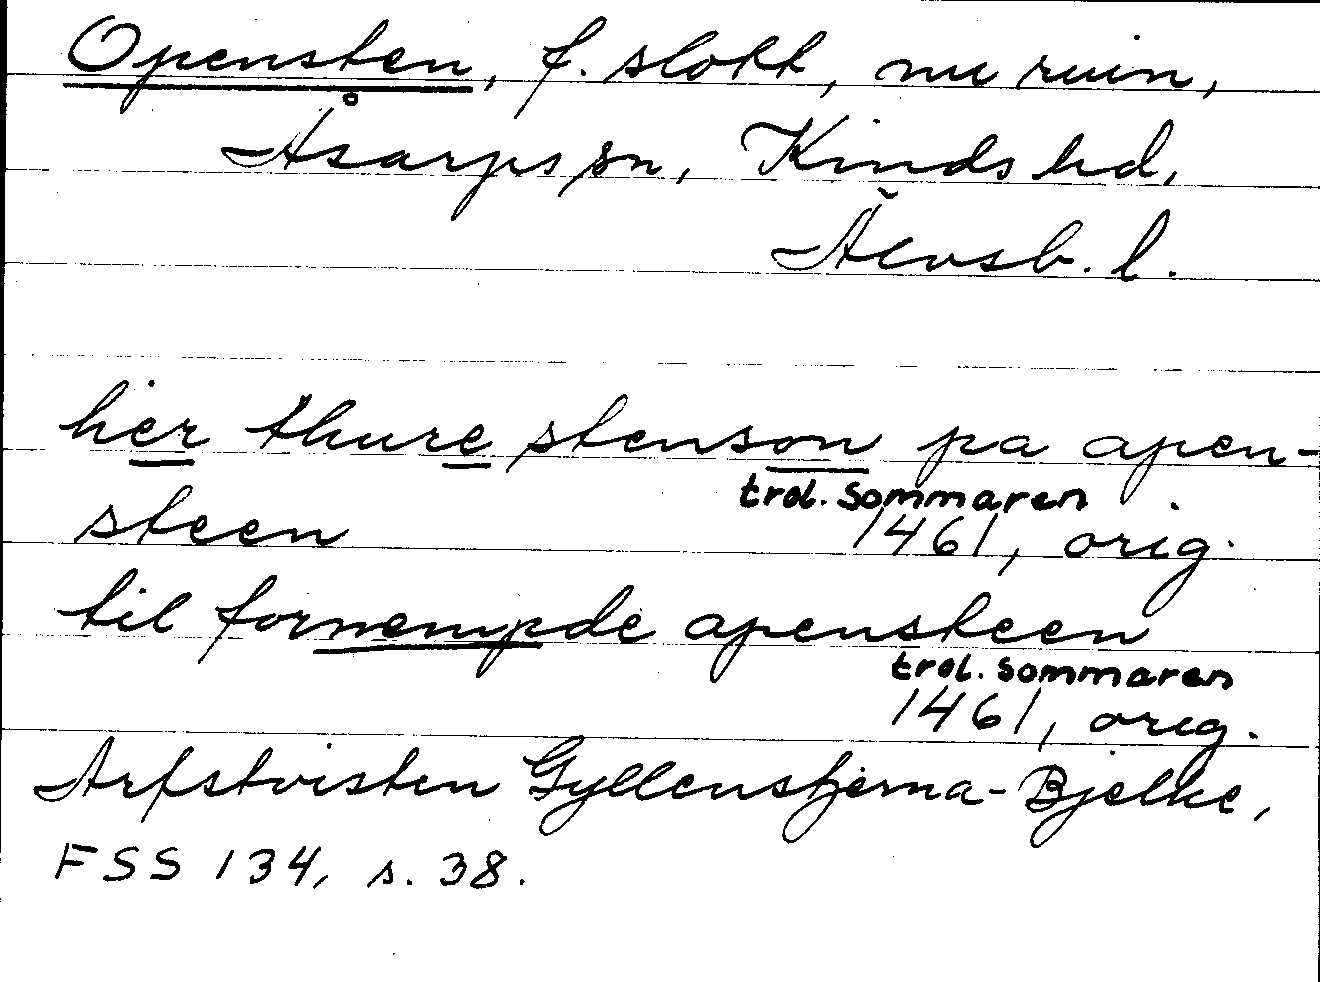 Opensten, f. slott, nu ruin,
Åsarps sn, Kinds hd,
Älvsb. l.
her thure stenson pa apen-
steen trol. sommaren 1461, orig.
til fornempde apensteen
trol. sommaren
1461, orig.
Arfstvisten Gyllenstjerna-Bjelke,
FSS 134, s. 38.